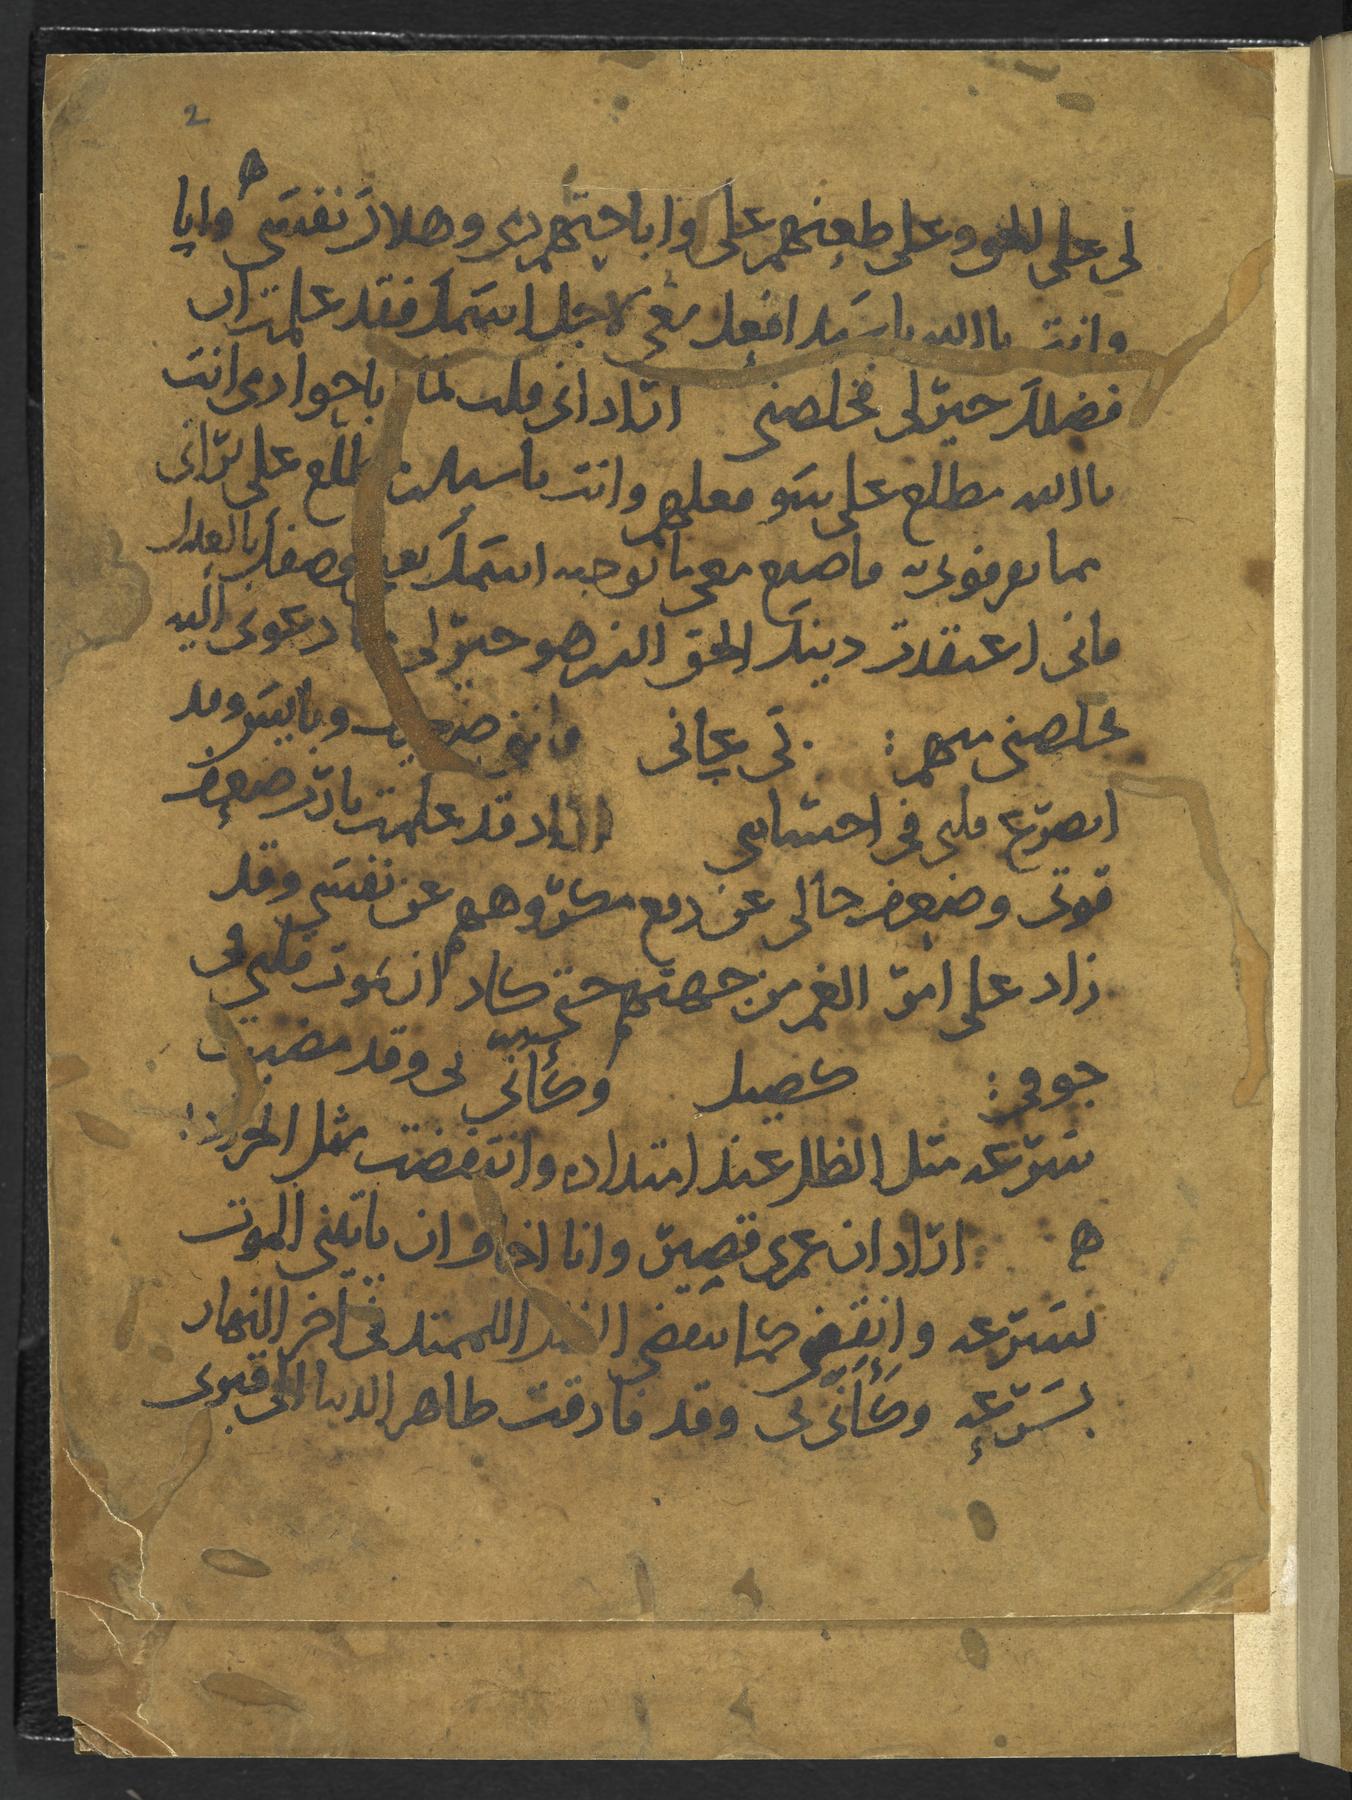 2
لى على الحق وعلى طعنهم على واباحتهم دمى وهلاك نفسى ه وايا
وانت ياالله يا سيد افعل معى لاجل اسمك فقد علمت ان
فضلك خير لى فخلصنى اراد انى قلت لما ياجوادى انت
ياالله مطلع على سو فعلهم وانت يا سيد مطلع على براتى
مما يعرفونى به فاصنع معى ما يوجبه اسمك بعد وصفك بالعدل
فانى اعتقدت دينك الحق الذى هو خير لى دعوى اليه
تخلصنى منهم : كى عانى فانى ضعيف وبايس وقد
انصرع قلبى فى احشاى اراد قد علمت يا رب ضعف
قوتى وضعف حالى عن دفع مكروههم عن نفسى وقد
زاد على امر الغم من جهتهم حتى كاد ان يموت قلبى فى
جوفى : كصيل وكأنى بى وقد مضيت
بسرعه مثل الظل عند امتداده وانتفضت مثل الجراد
ه اراد ان عمرى قصير وانا اخاف ان ياتينى الموت
بسرعه وانقضى كما ينقضى الظل الممتد فى اخر النهار
بسرعه وكأنى بى وقد فارقت ظاهر الدنيا الى قبرى